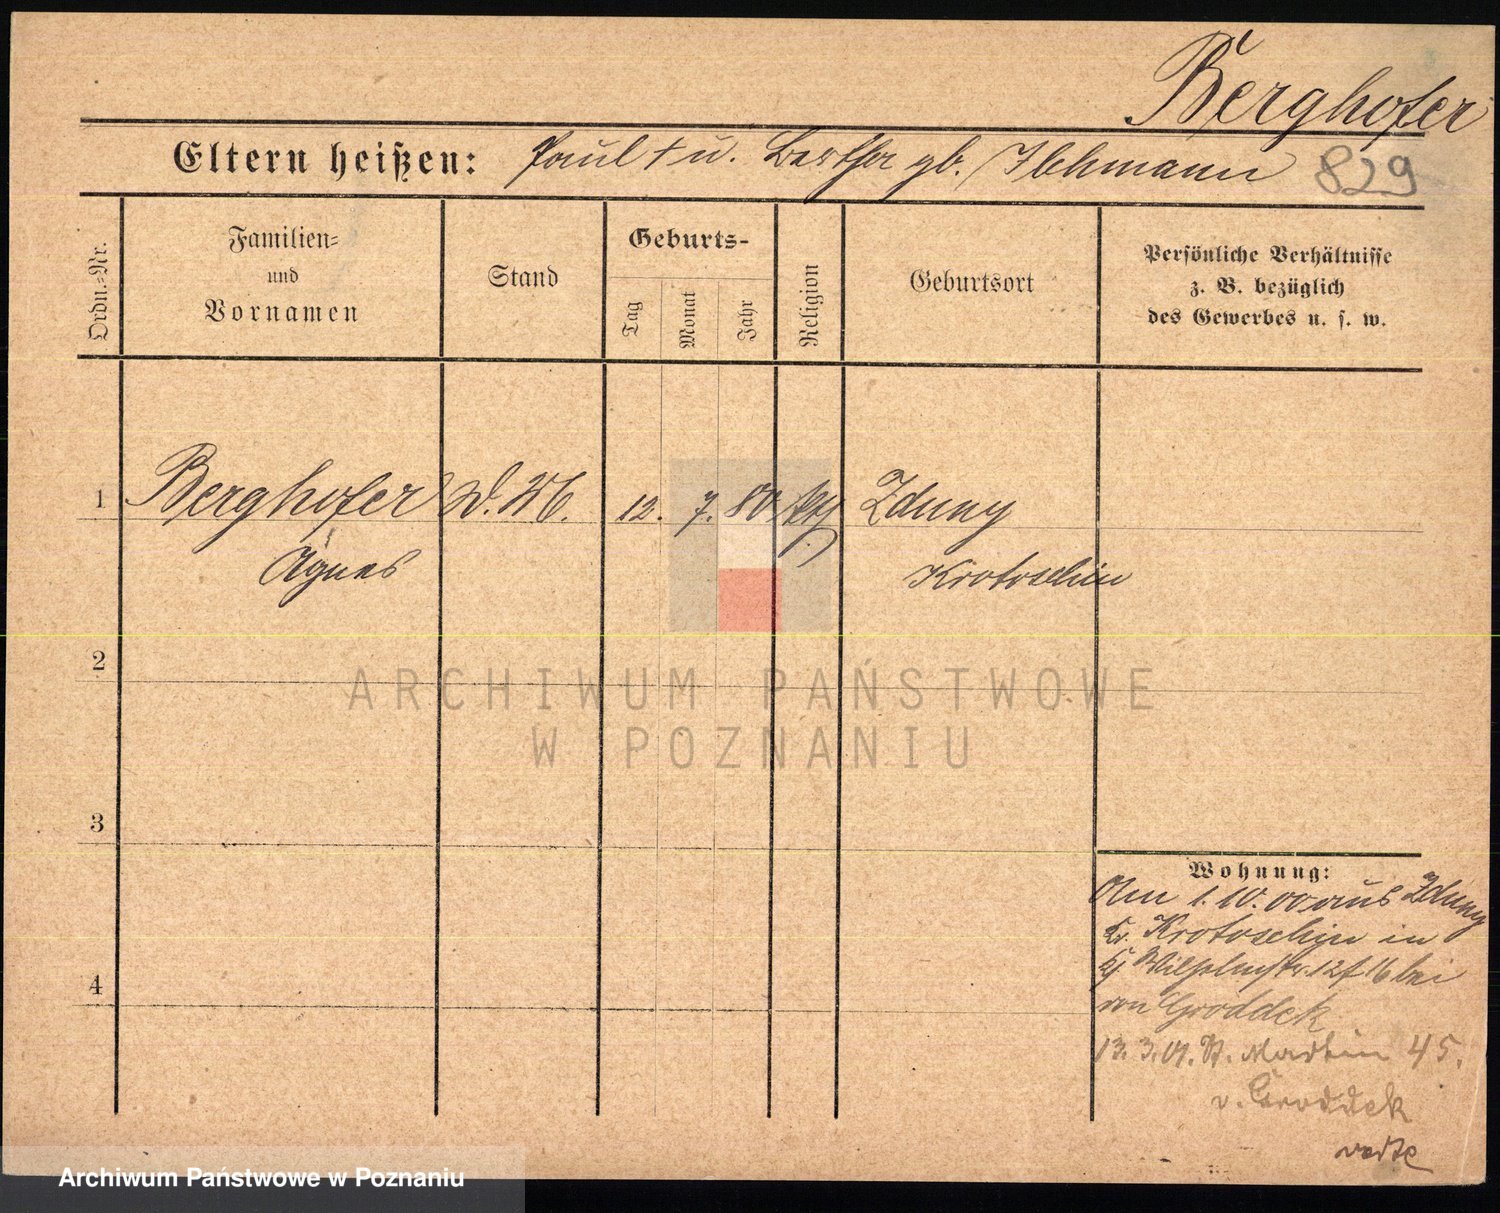 Berghofer
Eltern heißen: Paul † u. Bertha gb. Ihlmann 829
Ordn.-Nr.
Familien-
und
Vornamen
Stand
Geburts-
Tag
Monat
Jahr
Religion
Geburtsort
Persönliche Verhältnisse
z. B. bezüglich
des Gewerbes u. s. w.
1 Berghofer D. M. 12. 7. 80 Zduny
Agnes Krotoschin
2
ARCHIWUM PAŃSTWOWE
W POZNANIU
3
Wohnung:
Am 1. 10. 00 aus Zduny
Kr. Krotoschin in
Wilhelmstr. 12 f 16 bei
4
von Groddek
13. 3. 01. St. Martin 45.
v. Groddek
verte
Archiwum Państwowe w Poznaniu